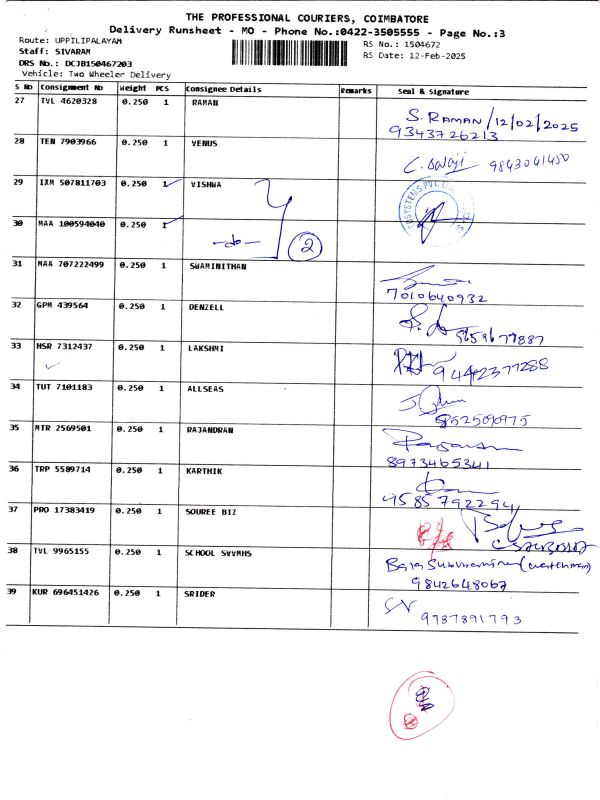 THE PROFESSIONAL COURIERS, COIMBATORE
Delivery Runsheet - MO - Phone No.:0422-3505555 - Page No.:3
Route: UPPILIPALAYAM
RS No.: 1504672
Staff: SIVARAM
RS Date: 12-Feb-2025
DRS No.: DCJB150467203
Vehicle: Two Wheeler Delivery
S No Consignment No Weight PCS Consignee Details Remarks Seal & Signature
27 TVL 4620328 0.250 1 RAMAN S. RAMAN/12/02/2025
9343726213
28 TEN 7903966 0.250 1 VENUS C. Balaji 9843041450
29 IXM 507811703 0.250 1 VISHWA
30 MAA 100594040 0.250 1 -do- 2
31 MAA 707222499 0.250 1 SWAMINITHAN
7010640932
32 GPM 439564 0.250 1 DENZELL
9659677887
33 HSR 7312437 0.250 1 LAKSHMI
9442377288
34 TUT 7101183 0.250 1 ALLSEAS
35 MTR 2569501 0.250 1 RAJANDRAN
8973465341
36 TRP 5589714 0.250 1 KARTHIK
9585792294
37 PRO 17383419 0.250 1 SOUREE BIZ
38 TVL 9965155 0.250 1 SCHOOL SVVMHS
(watchman)
9842648067
39 KUR 696451426 0.250 1 SRIDER
9787891793